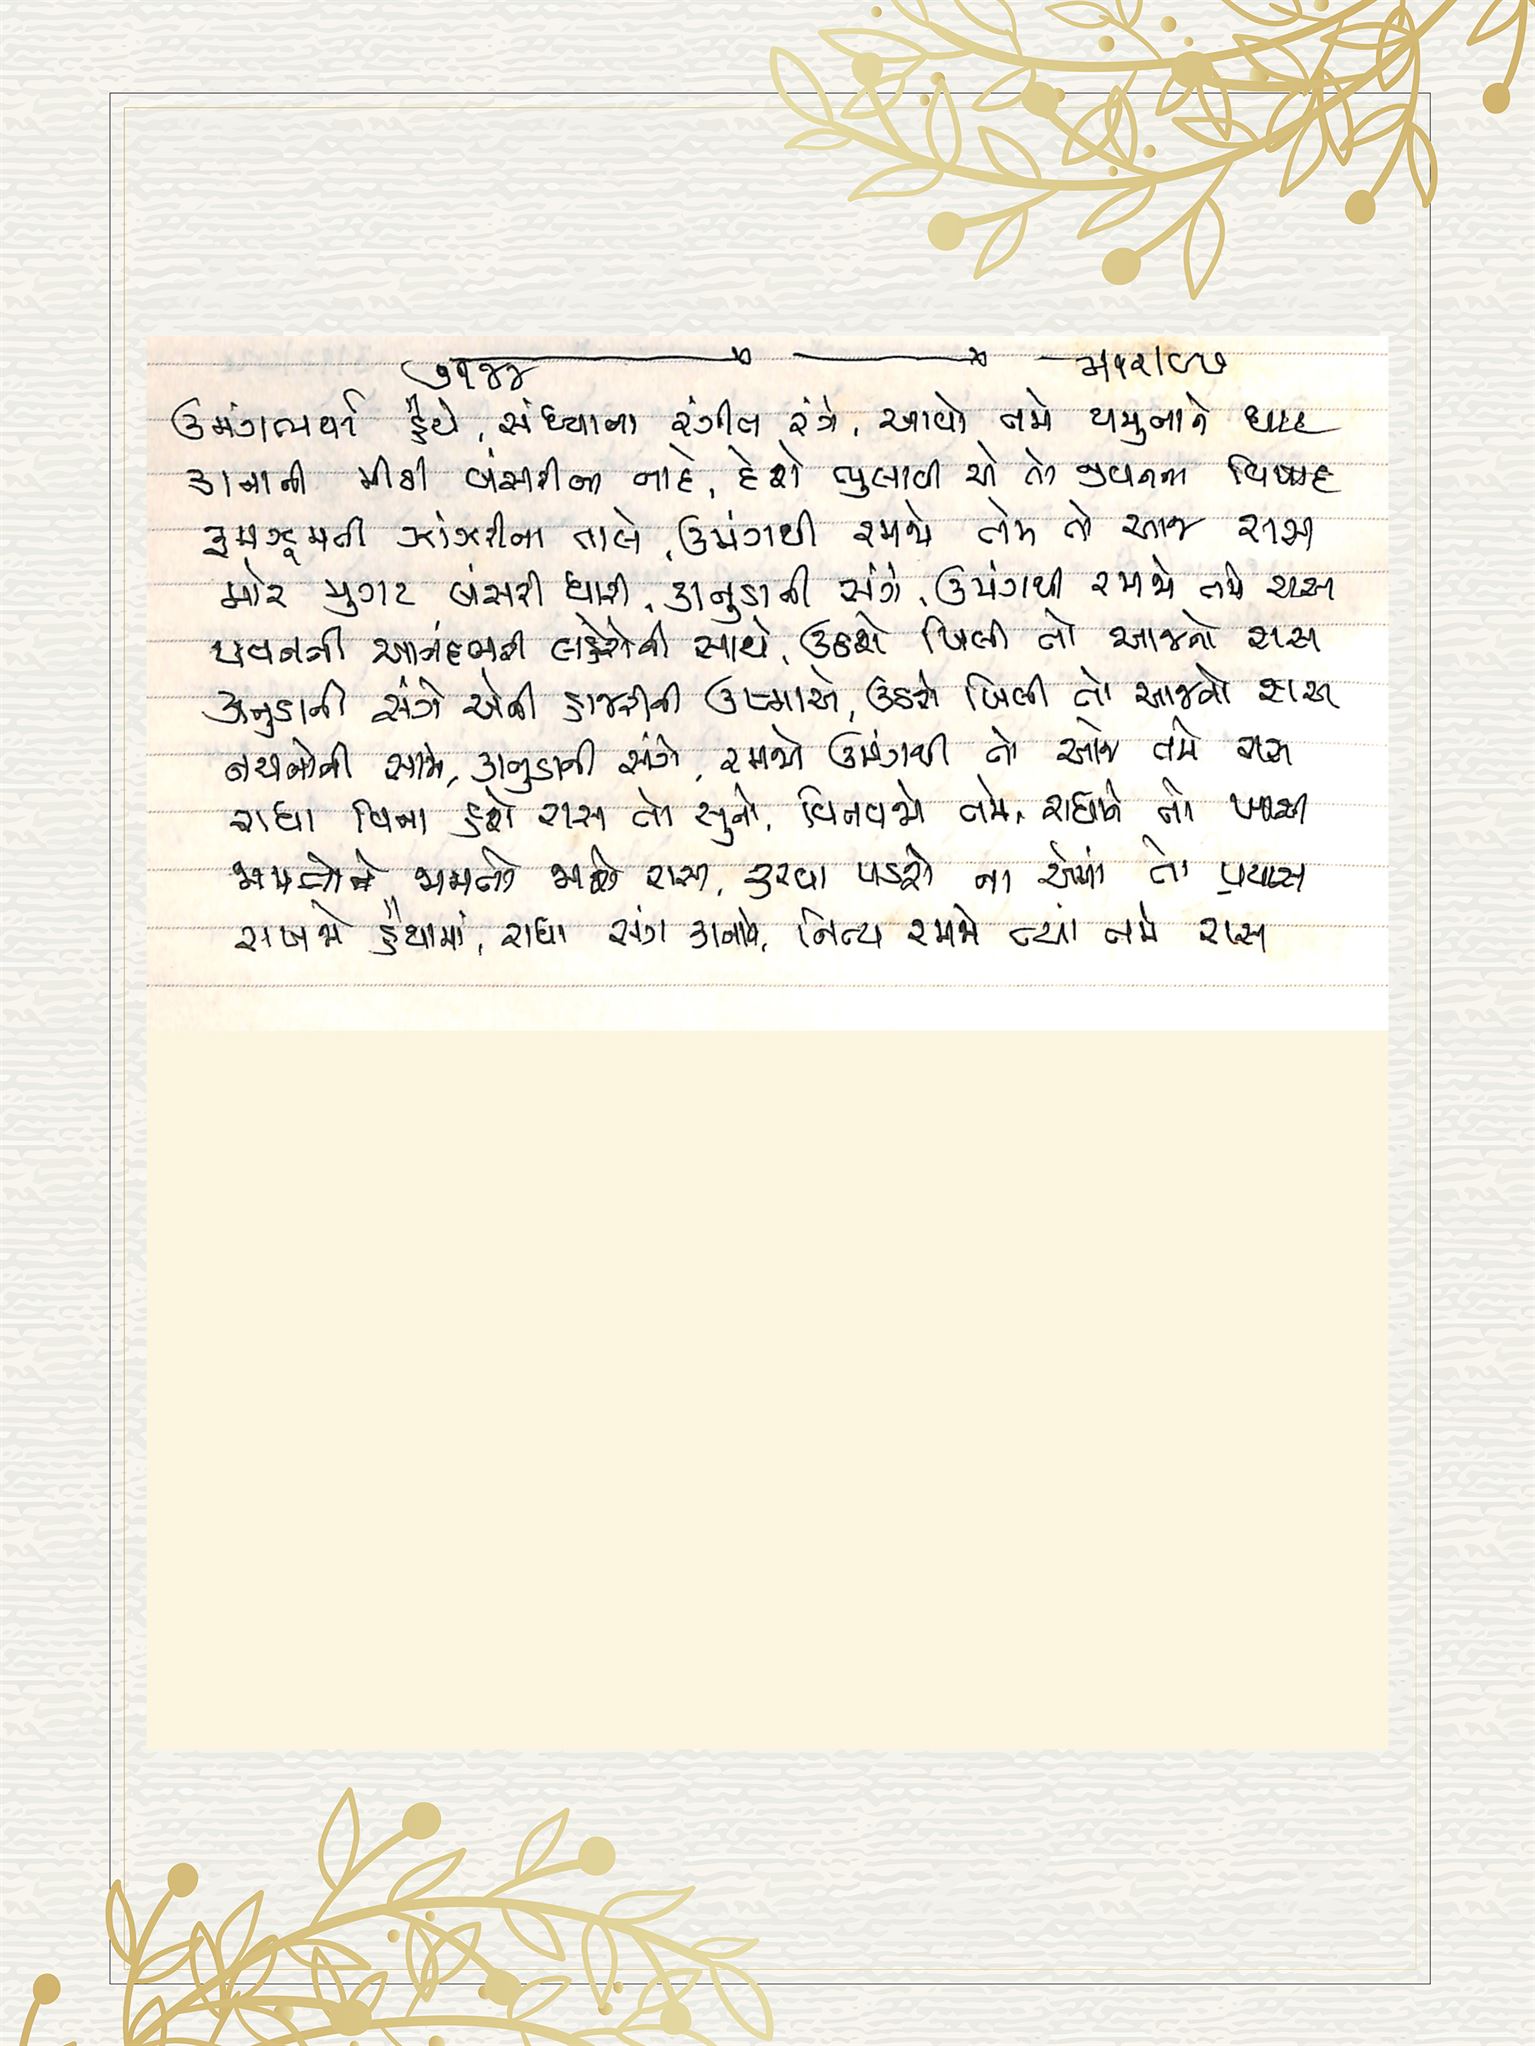 ૭૧૪૪
ઉમંગભર્યા હૈયે, સંધ્યાના રંગીલ રંગે, આવો તમે યમુનાને ઘાટ
કાનાની મીઠી બંસરીના નાદે, દેશે ભુલાવી એ તો જીવનના વિષાદ
રૂમઝૂમતી ઝાંઝરીના તાલે, ઉમંગથી રમજો તમે તો આજ રાસ
મોર મુગટ બંસરી ધારી, કાનુડાની સંગે, ઉમંગથી રમજો તમે રાસ
પવનની આનંદભરી લહેરોની સાથે, ઉઠશે ખિલી તો આજનો રાસ
કાનુડાની સંગે એની હાજરીની ઉષ્માએ, ઉઠશે ખિલી તો આજનો રાસ
નયનોની સામે, કાનુડાની સંગે, રમજો ઉમંગથી તો આજ તમે રાસ
રાધા વિના હશે રાસ તો સુનો, વિનવજો તમે, રાધાને તો ખાસ
જામતો જાશે રાસ, કરવા પડશે ના એમાં તો પ્રયાસ
રાખજે હૈયામાં, રાધા સંગ કાનાને, નિત્ય રમજે ત્યાં તમે રાસ